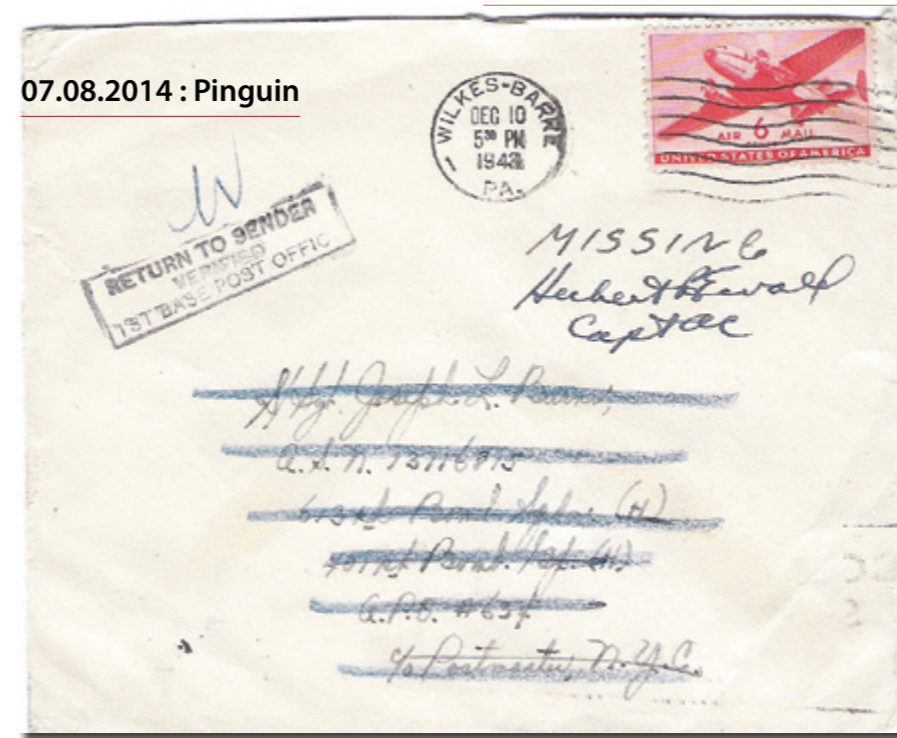 07.08.2014 : Pinguin
WILKES-BARRE
DEC 10
5 30 PM
1943
PA.
AIR 6 MAIL
UNITED STATES OF AMERICA
W
RETURN TO SENDER
VERIFIED
1ST BASE POST OFFIC
MISSING
Herbert Ewald
Capt AC
S/Sgt. Joseph L.
A.S.N.
613th Bomb Sqdn (H)
401st Bomb. Gp. (H)
A.P.O. #634
c/o Postmaster, N.Y.C.